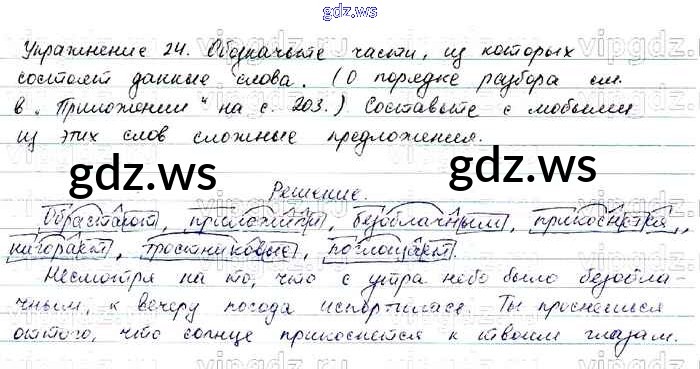 gdz.ws
Упражнение 24. Обозначьте части, из которых
состоят данные слова. (О порядке разбора см.
в „Приложении“ на с. 203.) Составьте с любыми
из этих слов сложные предложения.
gdz.ws gdz.ws
Решение.
Обрастают, приложили, безоблачным, прикоснется,
нагорают, тростниковые, поглощает.
Несмотря на то, что с утра небо было безобла-
чным, к вечеру погода испортилась. Ты проснешься
оттого, что солнце прикоснется к твоим глазам.
gdz.ws gdz.ws